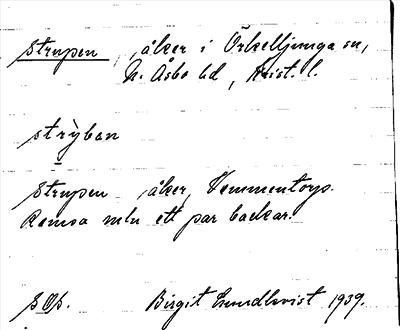 Strupen, åker i Örkelljunga sn,
N. Åsbo hd, Krist. l.
strỳban
Strupen, åker, Vemmentorp.
Remsa mln ett par backar.
Birgit Lundkvist 1939.